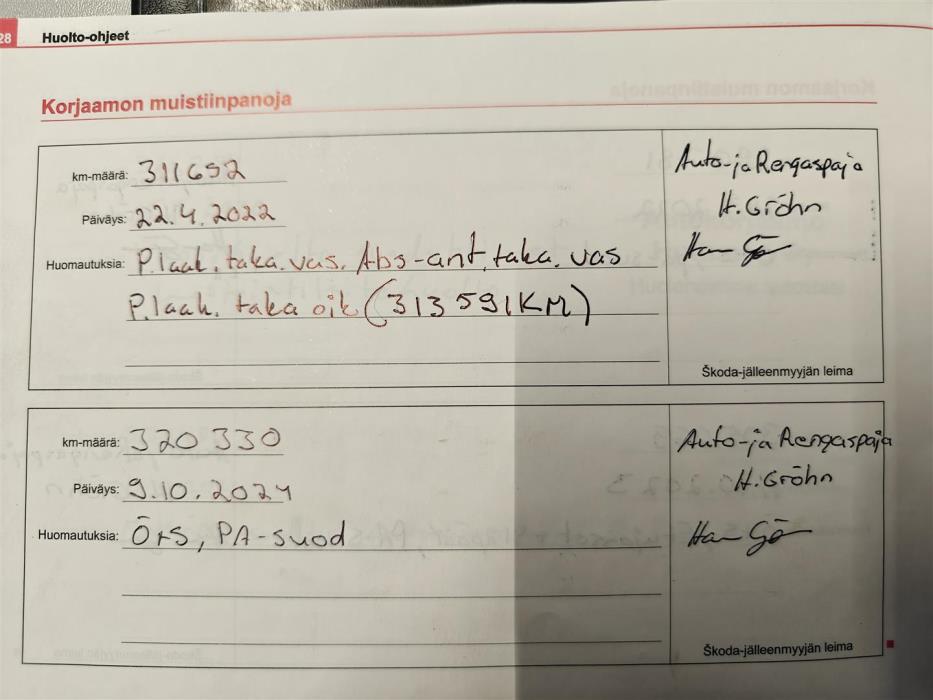 28 Huolto-ohjeet
Korjaamon muistiinpanoja
km-määrä: 311652
Päiväys: 22.4.2022
Huomautuksia: P.laak. taka. vas. Abs-ant. taka. vas
P.laak. taka oik (313 591KM)
Auto-ja Rengaspaja
H. Gröhn
Škoda-jälleenmyyjän leima
km-määrä: 320 330
Päiväys: 9.10.2024
Huomautuksia: Ö+S, PA-suod
Auto-ja Rengaspaja
H. Gröhn
Škoda-jälleenmyyjän leima